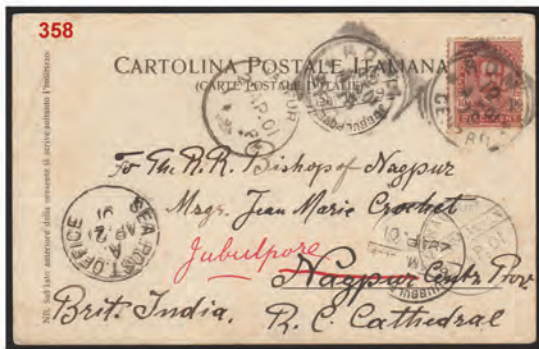 358
CARTOLINA POSTALE ITALIANA
(CARTE POSTALE D'ITALIE)
NB. Sul lato anteriore della presente si scrive soltanto l'indirizzo.
To The R.R. Bishop of Nagpur
Msgr. Jean Marie Crochet
Jubulpore
Nagpur Centr Prov.
Brit. India.
R. C. Cathedral
SEA POST OFFICE
A
AP. 2
01
AP. 01